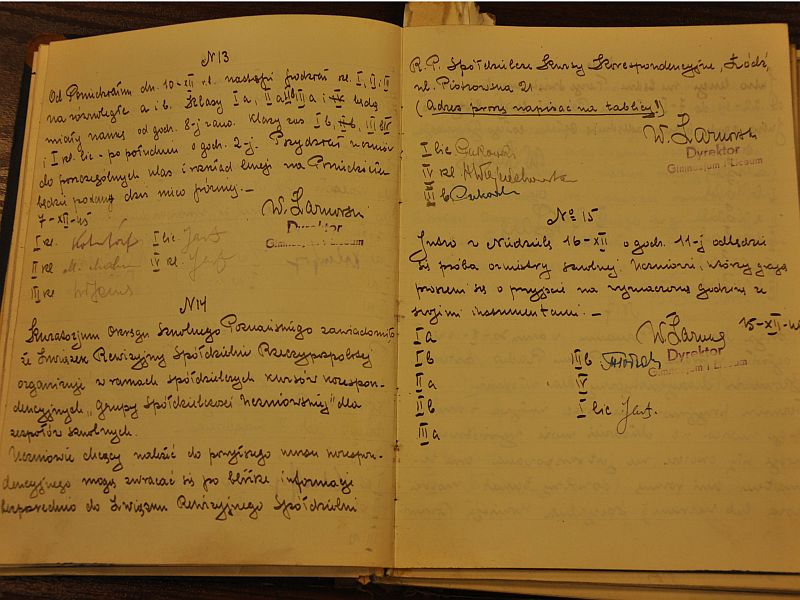 N 13
Od Poniedziałku dn. 10-XII r.b. nastąpi podział kl. I, II i III
na równoległe a i b. Klasy I a, II a, III a i IV będą
miały naukę od godz. 8-j rano. Klasy zaś I b, II b, III b
i I kl. lic - po południu o godz. 2-j. Przydział uczniów
do poszczególnych klas i rozkład lekcji na Poniedziałek
będzie podany dziś nieco później. –
7-XII-45
W. Żarnowski
Dyrektor
Gimnazjum i Liceum
I kl.
I lic.
II kl
IV kl.
III kl
N 14
Kuratorjum Okręgu Szkolnego Poznańskiego zawiadomiło
że Związek Rewizyjny Spółdzielni Rzeczypospolitej
organizuje w ramach spółdzielczych kursów korespon-
dencyjnych „Grupy Spółdzielczości Uczniowskiej" dla
zespołów szkolnych.
Uczniowie chcący należeć do przyszłego kursu korespon-
dencyjnego mogą zwracać się po bliższe informacje
bezpośrednio do Związku Rewizyjnego Spółdzielni
R.P. Spółdzielcze Kursy Korespondencyjne, Łódź,
ul. Piotrkowska 21
(Adres proszę napisać na tablicy!)
W. Żarnowski
Dyrektor
Gimnazjum i Liceum
I lic
IV kl.
III b
No 15
Jutro w Niedzielę 16-XII o godz. 11-j odbędzie
się próba orkiestry szkolnej. Uczniowie, którzy grają
proszeni są o przyjście na wyznaczoną godzinę ze
swojimi instrumentami. –
15-XII-45
W. Żarnowski
Dyrektor
Gimnazjum i Liceum
I a
I b
II a
II b
III a
III b
IV
I lic